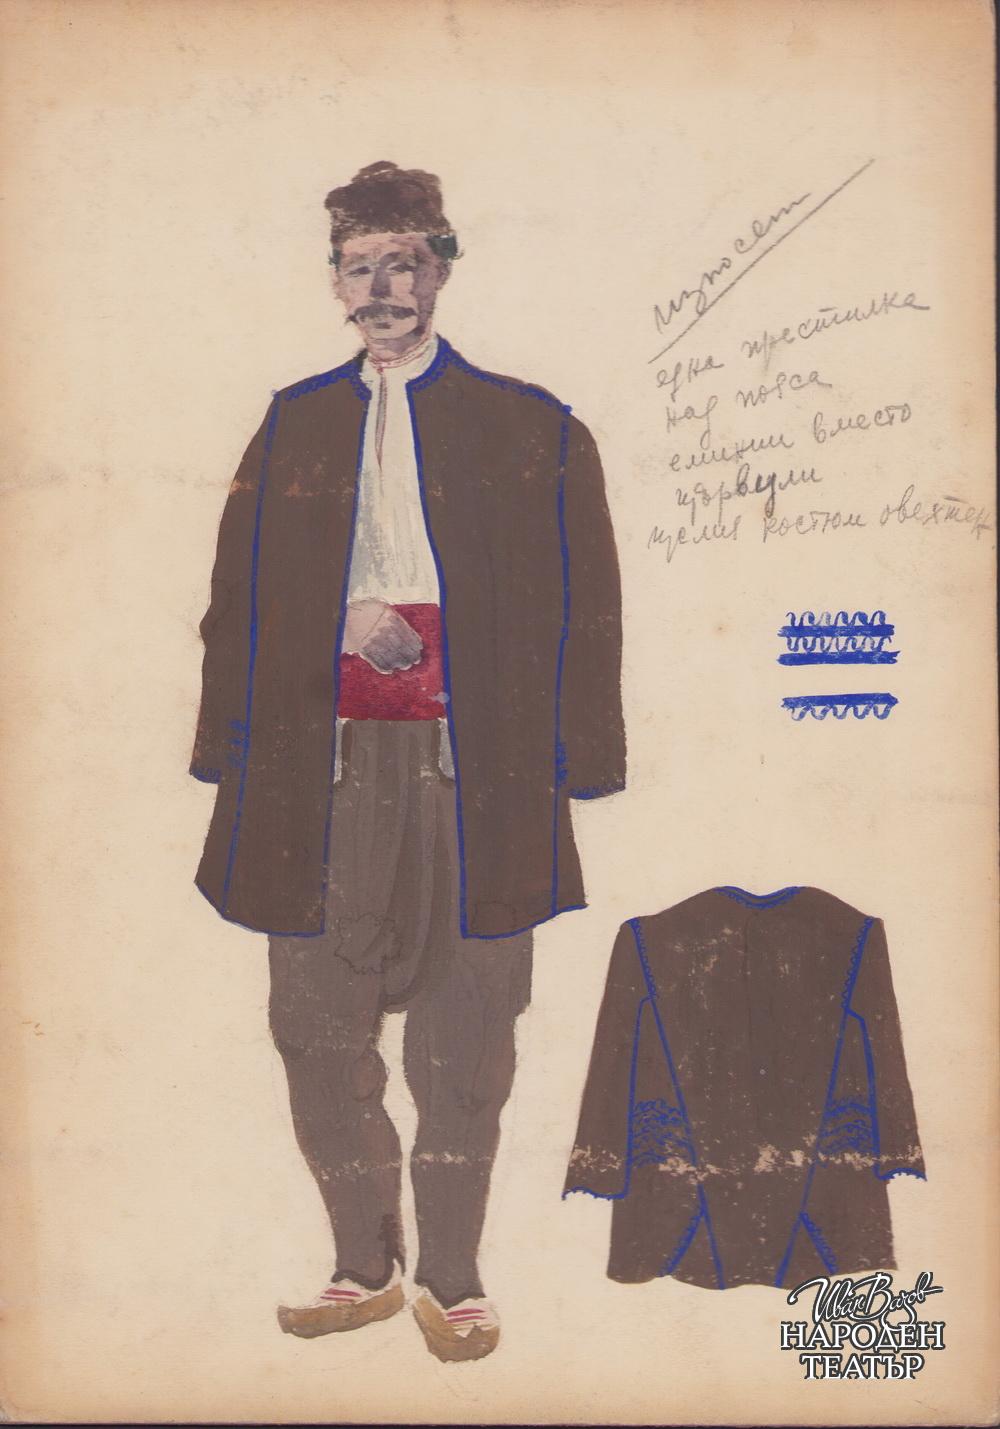 износен
една престилка
над пояса
еминии вместо
цървули
целия костюм овехтен
Иван Вазов
НАРОДЕН
ТЕАТЪР